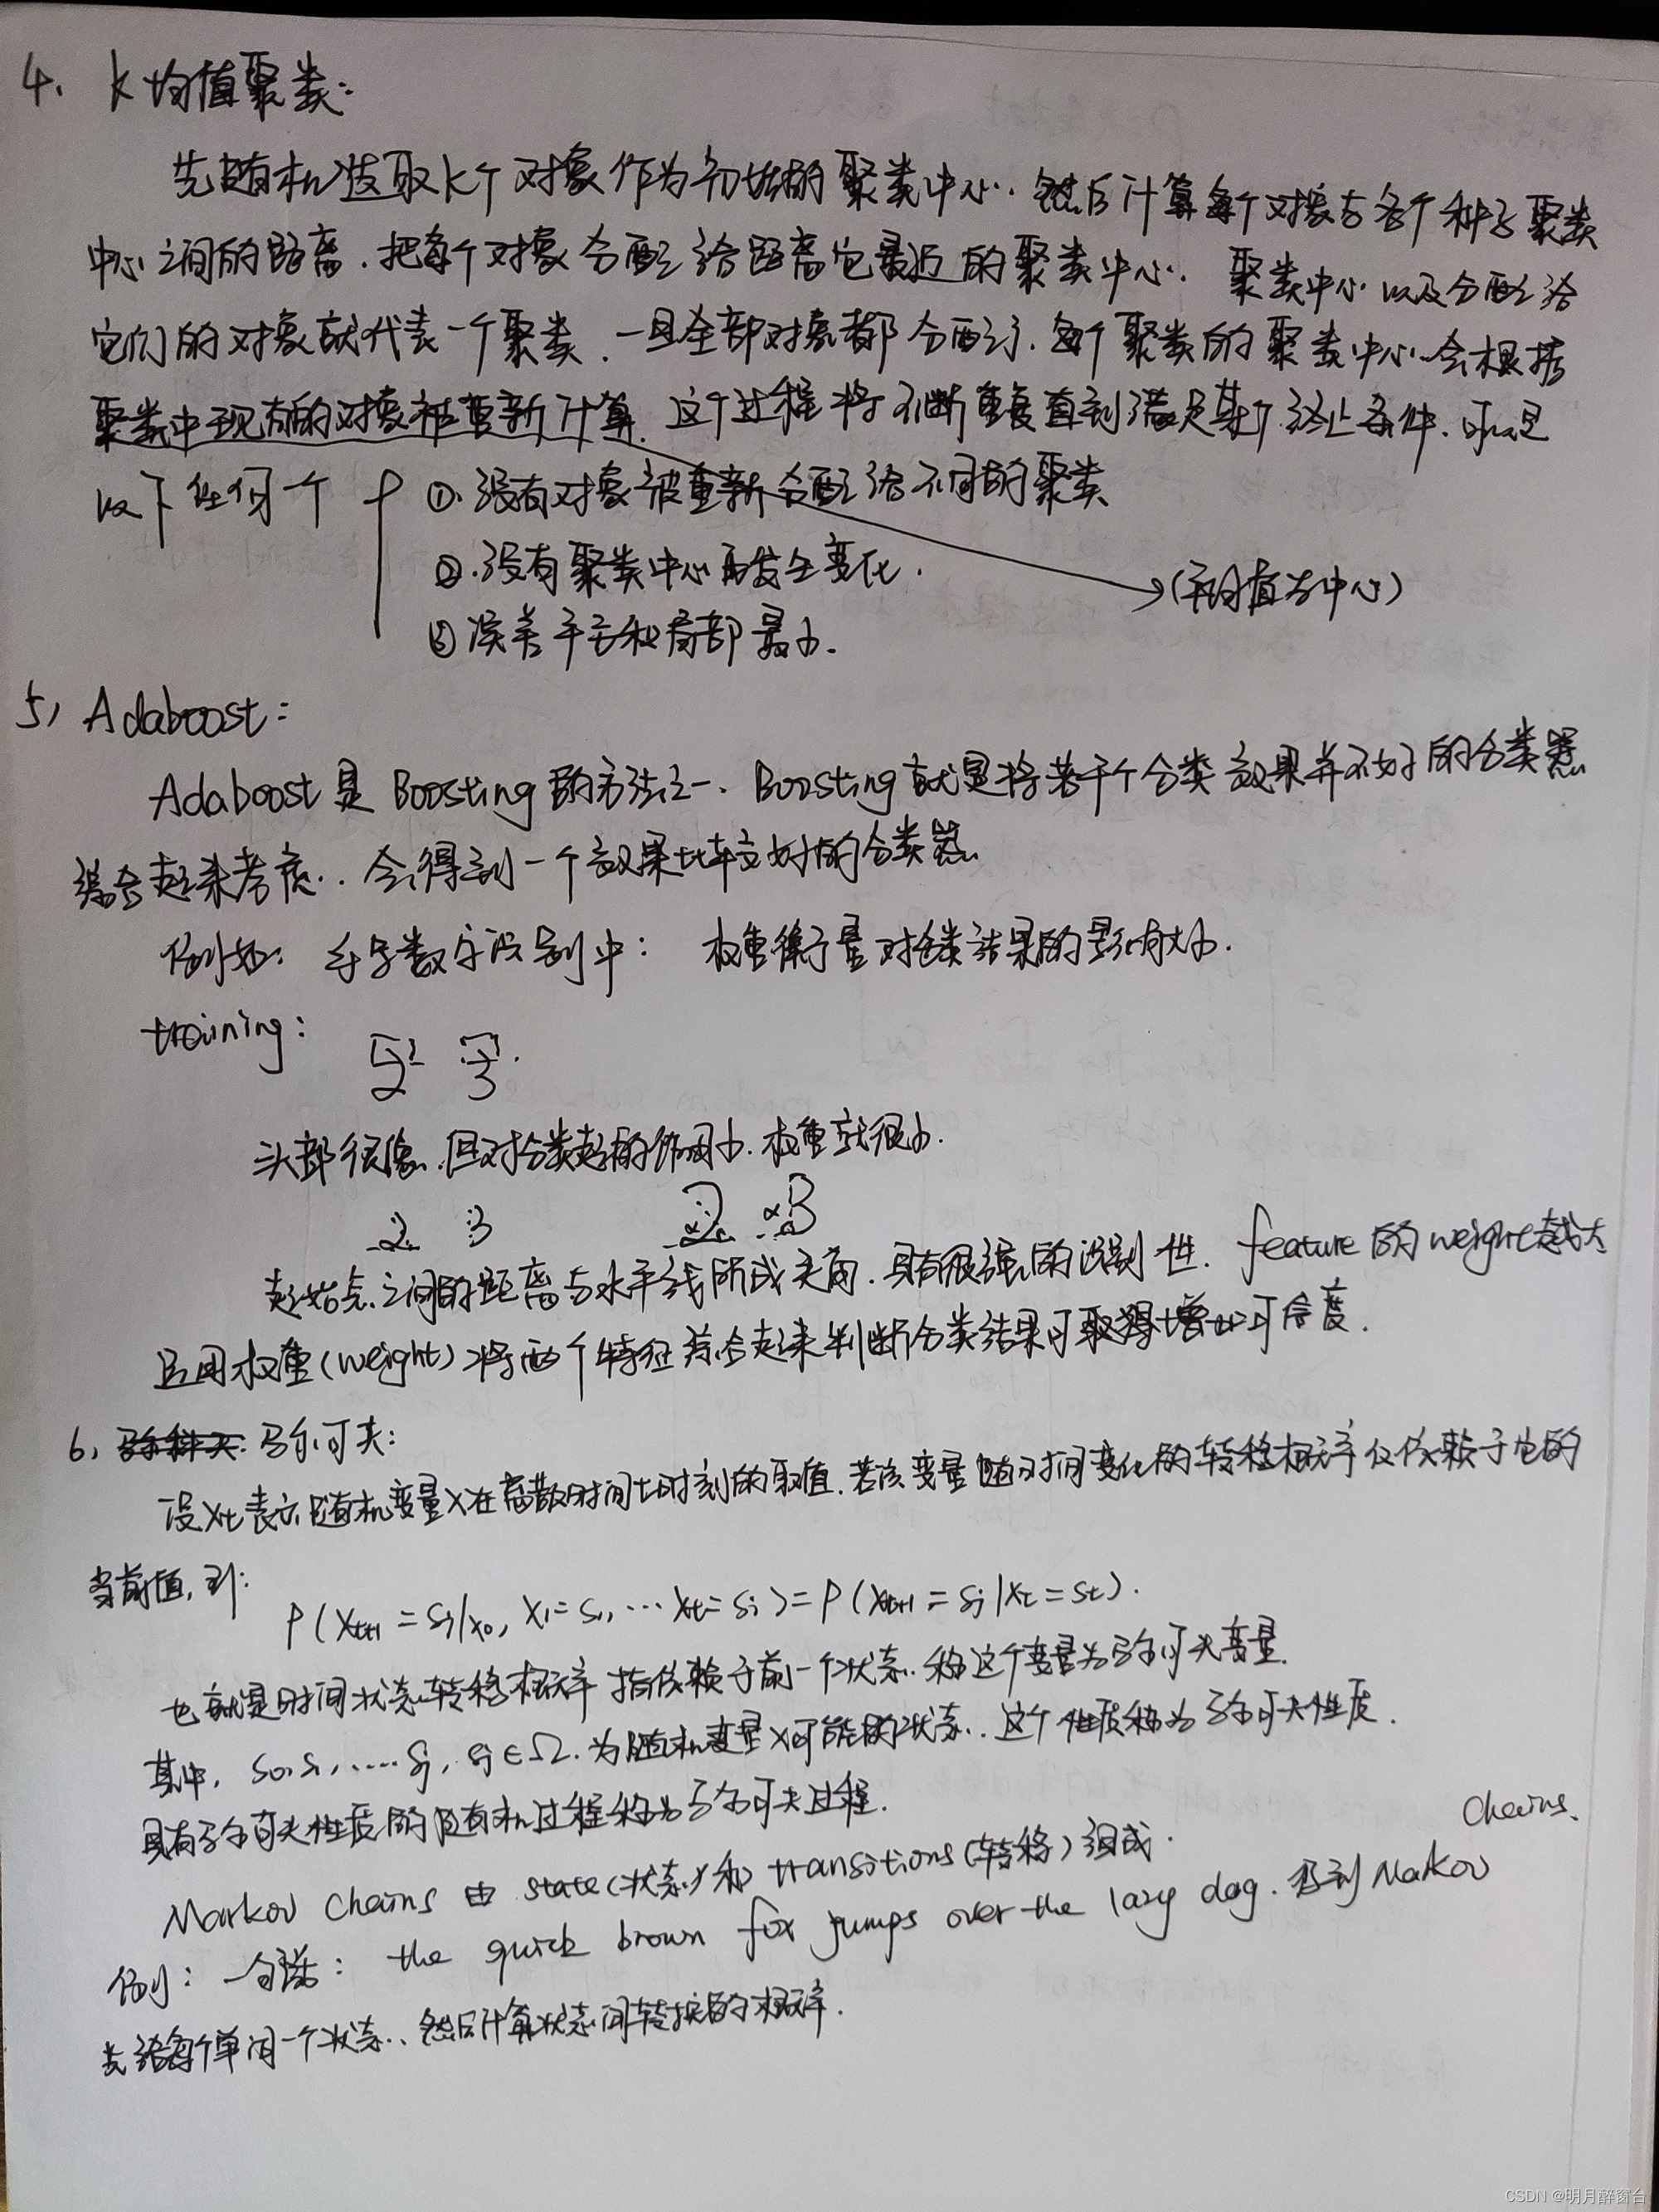 4. k均值聚类:
先随机选取k个对象作为初始的聚类中心. 然后计算每个对象与各个种子聚类
中心之间的距离. 把每个对象分配给距离它最近的聚类中心. 聚类中心以及分配给
它们的对象就代表一个聚类. 一旦全部对象都分配了. 每个聚类的聚类中心会根据
聚类中现有的对象被重新计算. 这个过程将不断重复直到满足某个终止条件. 可以是
以下任何一个
①. 没有对象被重新分配给不同的聚类
②. 没有聚类中心再发生变化.
(平均值为中心)
③ 误差平方和局部最小.
5, Adaboost:
Adaboost 是 Boosting 的方法之一. Boosting 就是将若干个分类效果并不好的分类器
综合起来考虑.. 会得到一个效果比较好的分类器
例如: 手写数字识别中: 权重衡量对分类结果的影响大小.
training:
2 3.
头部很像. 但对分类起的作用小. 权重就很小.
2 3 2 3
起始点之间的距离与水平线所成夹角. 具有很强的识别性. feature 的 weight 越大
且用权重(weight)将两个特征综合起来判断分类结果可取得增加可信度.
6, 马尔可夫:
设Xt表示随机变量X在离散时间t时刻的取值. 若该变量随时间变化的转移概率仅依赖于它的
当前值, 则:
P(Xt+1 = Sj|X0, X1=S1, ... Xt=Si) = P(Xt+1 = Sj|Xt = St).
也就是时间状态转移概率指依赖于前一个状态. 称这个变量为马尔可夫变量.
其中, S0, S1, ..... Sj, Sj∈Ω. 为随机变量X可能的状态.. 这个性质称为马尔可夫性质.
具有马尔可夫性质的随机过程称为马尔可夫过程.
chains.
Markov chains 由 state(状态)和 transitions(转移)组成.
例: 一句话: the quick brown fox jumps over the lazy dog. 得到 Markov
先给每个单词一个状态.. 然后计算状态间转换的概率.
CSDN @明月醉窗台